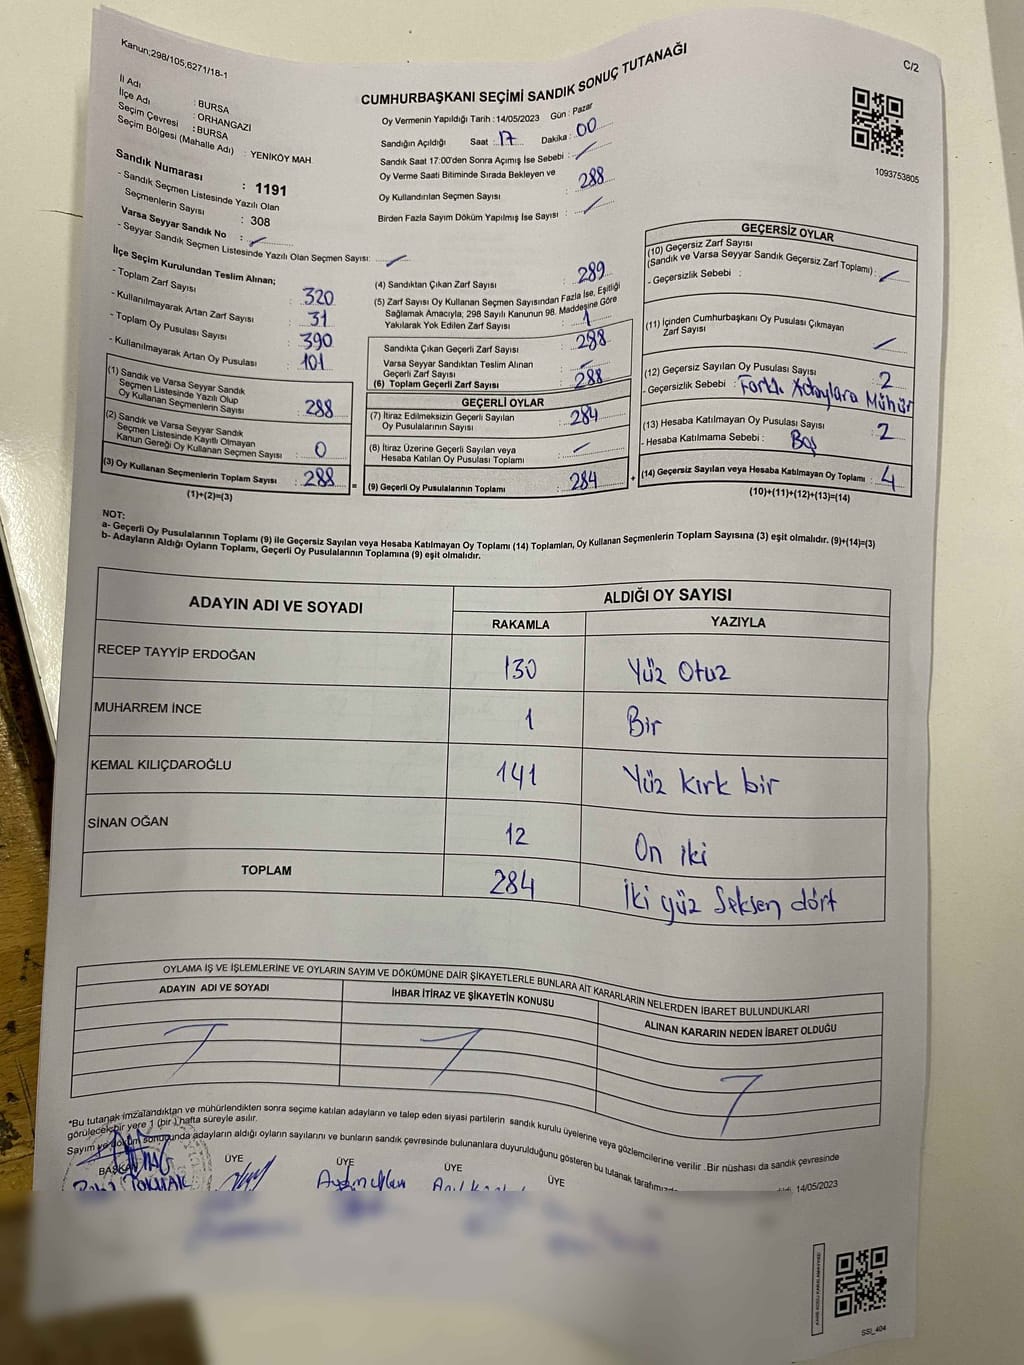 Kanun:298/105,6271/18-1
C/2
CUMHURBAŞKANI SEÇİMİ SANDIK SONUÇ TUTANAĞI
İl Adı : BURSA
İlçe Adı : ORHANGAZİ
Seçim Çevresi : BURSA
Seçim Bölgesi (Mahalle Adı) : YENİKÖY MAH
Sandık Numarası : 1191
- Sandık Seçmen Listesinde Yazılı Olan
Seçmenlerin Sayısı : 308
Varsa Seyyar Sandık No :
- Seyyar Sandık Seçmen Listesinde Yazılı Olan Seçmen Sayısı:
Oy Vermenin Yapıldığı Tarih : 14/05/2023 Gün : Pazar
Sandığın Açıldığı Saat : 17 Dakika : 00
Sandık Saat 17:00'den Sonra Açımış İse Sebebi :
Oy Verme Saati Bitiminde Sırada Bekleyen ve
Oy Kullandırılan Seçmen Sayısı : 288
Birden Fazla Sayım Döküm Yapılmış İse Sayısı :
1093753805
İlçe Seçim Kurulundan Teslim Alınan;
- Toplam Zarf Sayısı : 320
- Kullanılmayarak Artan Zarf Sayısı : 31
- Toplam Oy Pusulası Sayısı : 390
- Kullanılmayarak Artan Oy Pusulası : 101
(1) Sandık ve Varsa Seyyar Sandık
Seçmen Listesinde Yazılı Olup
Oy Kullanan Seçmenlerin Sayısı : 288
(2) Sandık ve Varsa Seyyar Sandık
Seçmen Listesinde Kayıtlı Olmayan
Kanun Gereği Oy Kullanan Seçmen Sayısı : 0
(3) Oy Kullanan Seçmenlerin Toplam Sayısı : 288
(1)+(2)=(3)
(4) Sandıktan Çıkan Zarf Sayısı : 289
(5) Zarf Sayısı Oy Kullanan Seçmen Sayısından Fazla İse, Eşitliği
Sağlamak Amacıyla; 298 Sayılı Kanunun 98. Maddesine Göre
Yakılarak Yok Edilen Zarf Sayısı : 1
Sandıkta Çıkan Geçerli Zarf Sayısı : 288
Varsa Seyyar Sandıktan Teslim Alınan
Geçerli Zarf Sayısı :
(6) Toplam Geçerli Zarf Sayısı : 288
GEÇERLİ OYLAR
(7) İtiraz Edilmeksizin Geçerli Sayılan
Oy Pusulalarının Sayısı : 284
(8) İtiraz Üzerine Geçerli Sayılan veya
Hesaba Katılan Oy Pusulası Toplamı :
(9) Geçerli Oy Pusulalarının Toplamı : 284
=
+
GEÇERSİZ OYLAR
(10) Geçersiz Zarf Sayısı
(Sandık ve Varsa Seyyar Sandık Geçersiz Zarf Toplamı) :
- Geçersizlik Sebebi :
(11) İçinden Cumhurbaşkanı Oy Pusulası Çıkmayan
Zarf Sayısı :
(12) Geçersiz Sayılan Oy Pusulası Sayısı : 2
- Geçersizlik Sebebi : Farklı Adaylara Mühür
(13) Hesaba Katılmayan Oy Pusulası Sayısı : 2
- Hesaba Katılmama Sebebi : Boş
(14) Geçersiz Sayılan veya Hesaba Katılmayan Oy Toplamı : 4
(10)+(11)+(12)+(13)=(14)
NOT:
a- Geçerli Oy Pusulalarının Toplamı (9) ile Geçersiz Sayılan veya Hesaba Katılmayan Oy Toplamı (14) Toplamları, Oy Kullanan Seçmenlerin Toplam Sayısına (3) eşit olmalıdır. (9)+(14)=(3)
b- Adayların Aldığı Oyların Toplamı, Geçerli Oy Pusulalarının Toplamına (9) eşit olmalıdır.
ADAYIN ADI VE SOYADI ALDIĞI OY SAYISI
RAKAMLA YAZIYLA
RECEP TAYYİP ERDOĞAN 130 Yüz Otuz
MUHARREM İNCE 1 Bir
KEMAL KILIÇDAROĞLU 141 Yüz kırk bir
SİNAN OĞAN 12 On iki
TOPLAM 284 İki yüz Seksen dört
OYLAMA İŞ VE İŞLEMLERİNE VE OYLARIN SAYIM VE DÖKÜMÜNE DAİR ŞİKAYETLERLE BUNLARA AİT KARARLARIN NELERDEN İBARET BULUNDUKLARI
ADAYIN ADI VE SOYADI İHBAR İTİRAZ VE ŞİKAYETİN KONUSU ALINAN KARARIN NEDEN İBARET OLDUĞU
*Bu tutanak imzalandıktan ve mühürlendikten sonra seçime katılan adayların ve talep eden siyasi partilerin sandık kurulu üyelerine veya gözlemcilerine verilir .Bir nüshası da sandık çevresinde
görülecek bir yere 1 (bir ) hafta süreyle asılır.
Sayım ve döküm sonucunda adayların aldığı oyların sayılarını ve bunların sandık çevresinde bulunanlara duyurulduğunu gösteren bu tutanak tarafımızdan 14/05/2023
BAŞKAN ÜYE ÜYE ÜYE ÜYE
TOKMAK
SSI_404